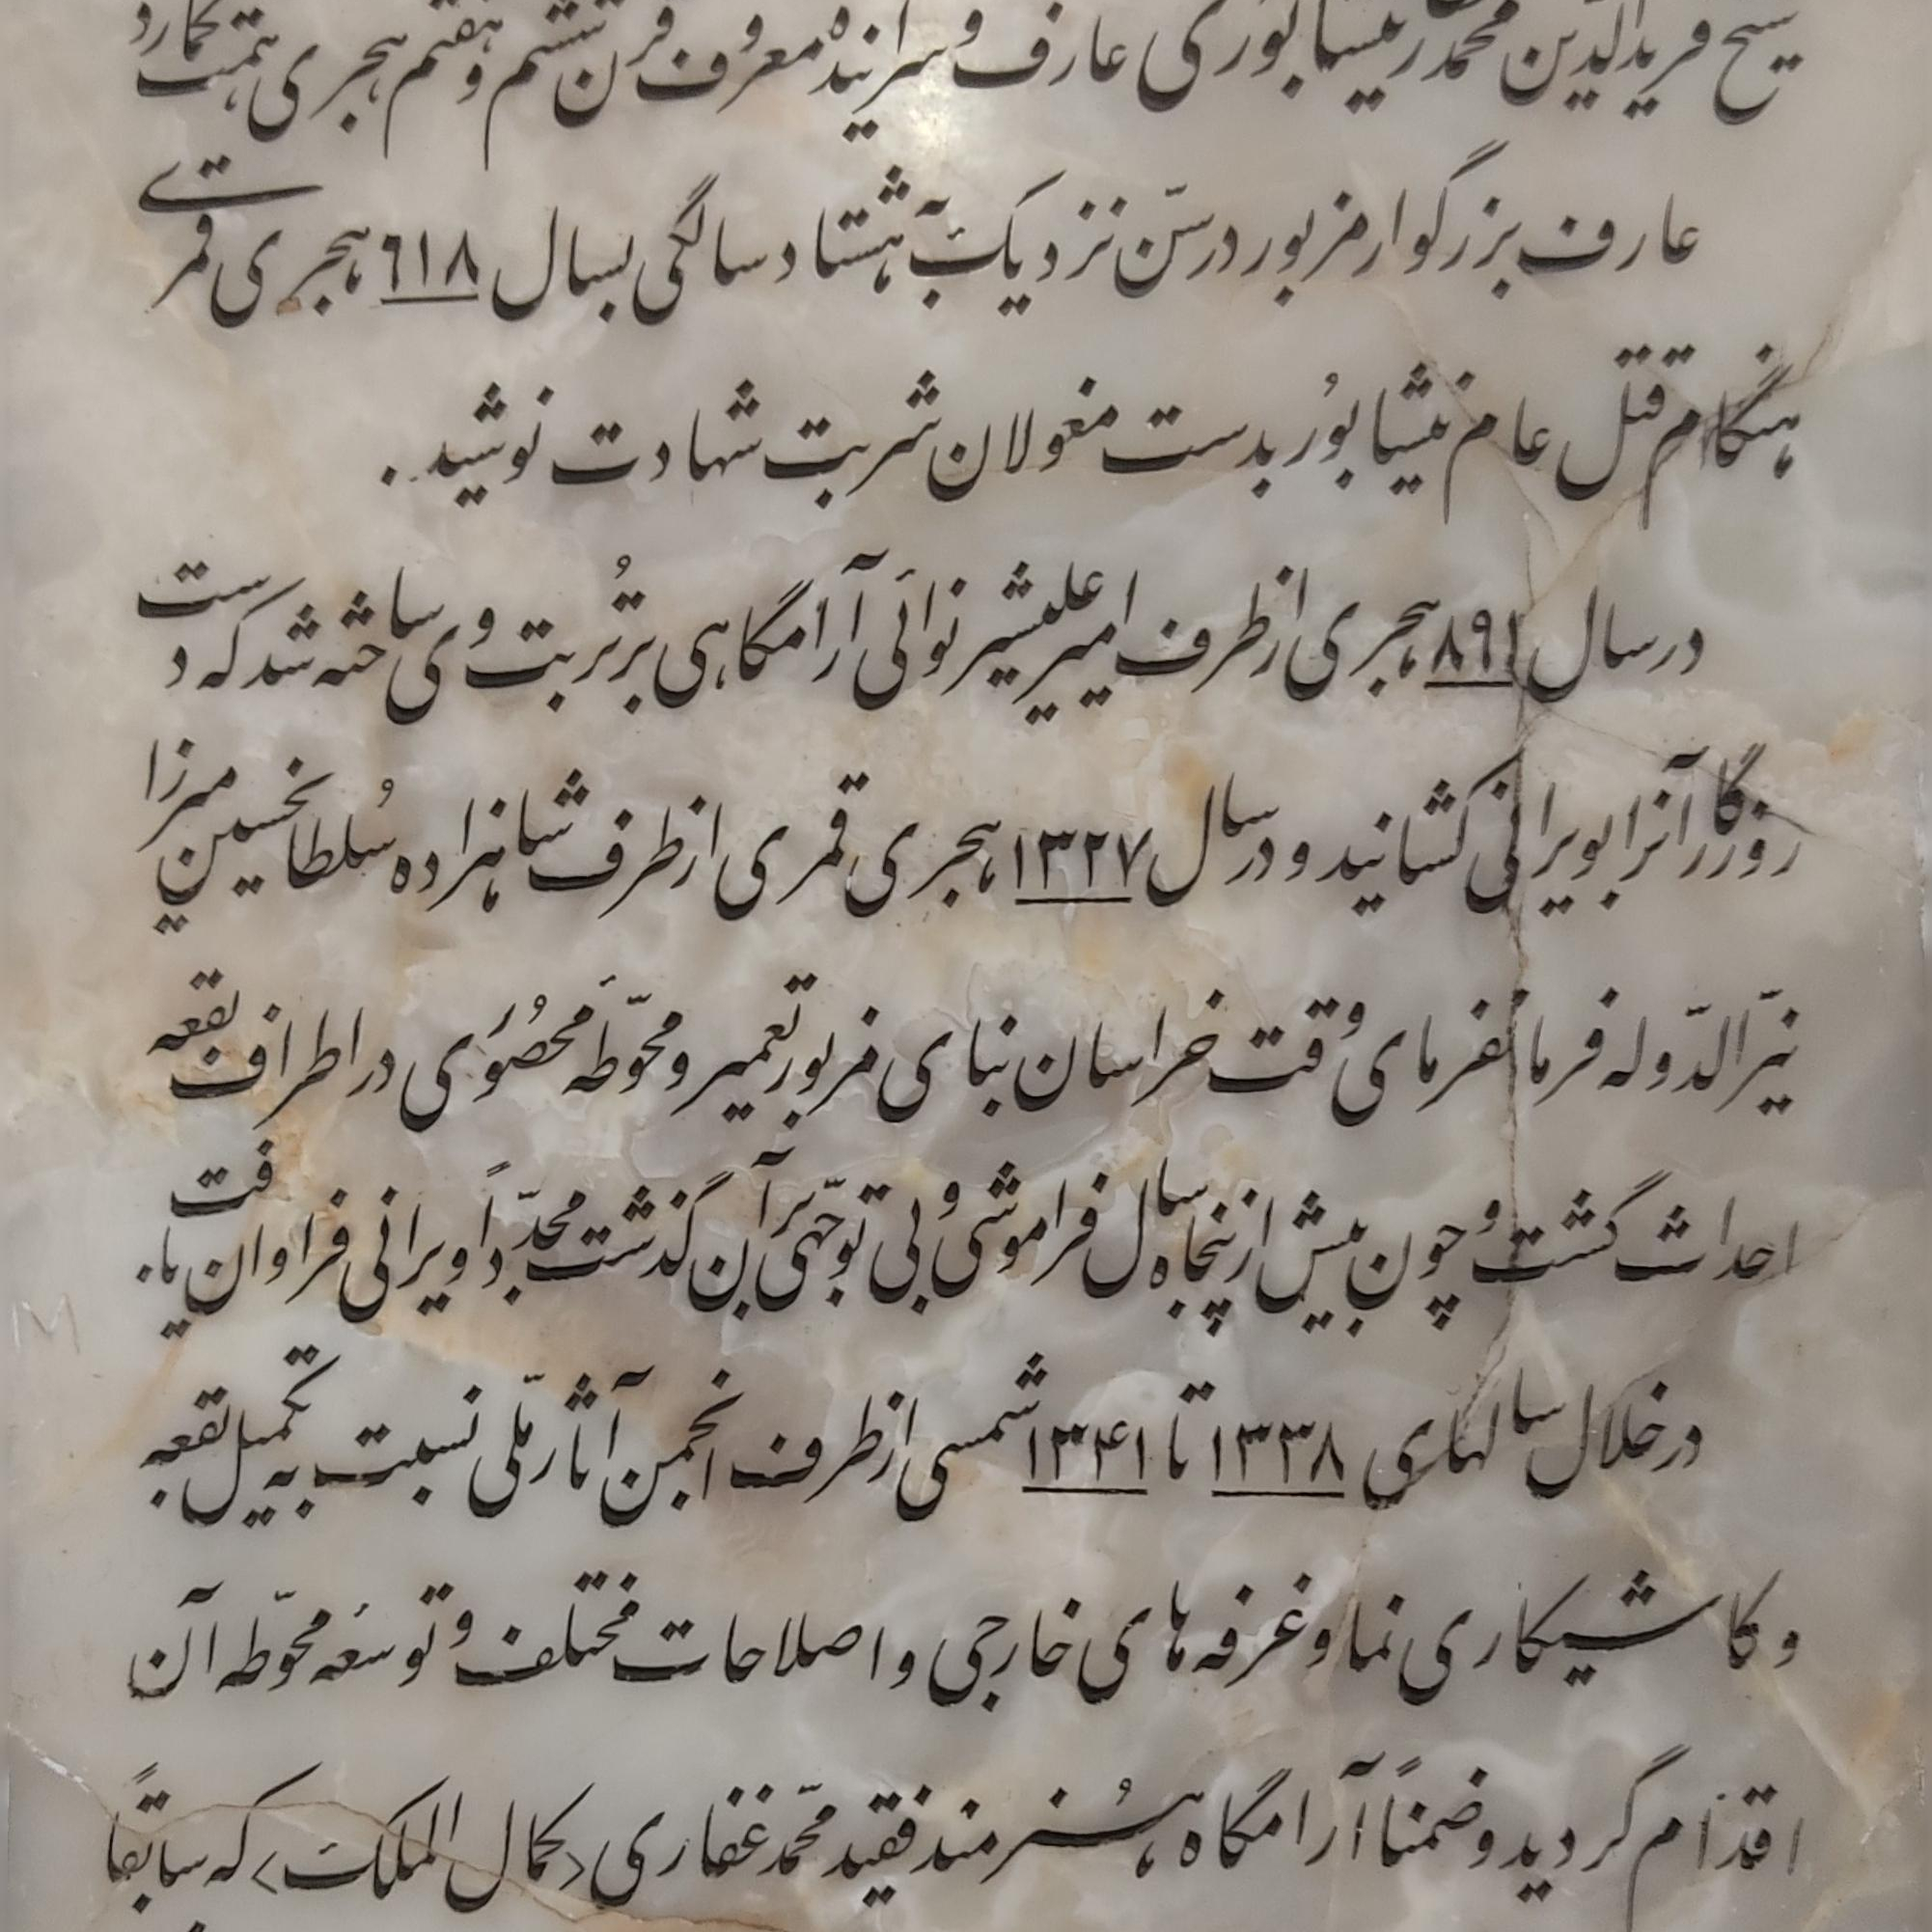 شیخ فریدالدین محمد نیشابوری عارف و سراینده معروف قرن ششم و هفتم هجری همت گمارد
عارف بزرگوار مزبور در سنّ نزدیک به هشتاد سالگی بسال ۶۱۸ هجری قمری
هنگام قتل عام نیشابُور بدست مغولان شربت شهادت نوشید.
در سال ۸۹۱ هجری از طرف امیر علیشیر نوائی آرامگاهی بر تُربت وی ساخته شد که دست
روزگار آنرا بویرانی کشانید و در سال ۱۳۲۷ هجری قمری از طرف شاهزاده سُلطانحسین میرزا
نیّرالدّوله فرمانفرمای وقت خراسان بنای مزبور تعمیر و محوّطه محصُوری در اطراف بقعه
احداث گشت و چون بیش از پنجاه سال فراموشی و بی توجّهی بر آن گذشت مجدّداً ویرانی فراوان یافت.
در خلال سالهای ۱۳۳۸ تا ۱۳۴۱ شمسی از طرف انجمن آثار ملّی نسبت به تکمیل بقعه
و کاشیکاری نما و غرفه های خارجی و اصلاحات مختلف و توسعهٔ محوّطه آن
اقدام گردید و ضمناً آرامگاه هُنرمند فقید محمّد غفاری <کمال الملک> که سابقاً